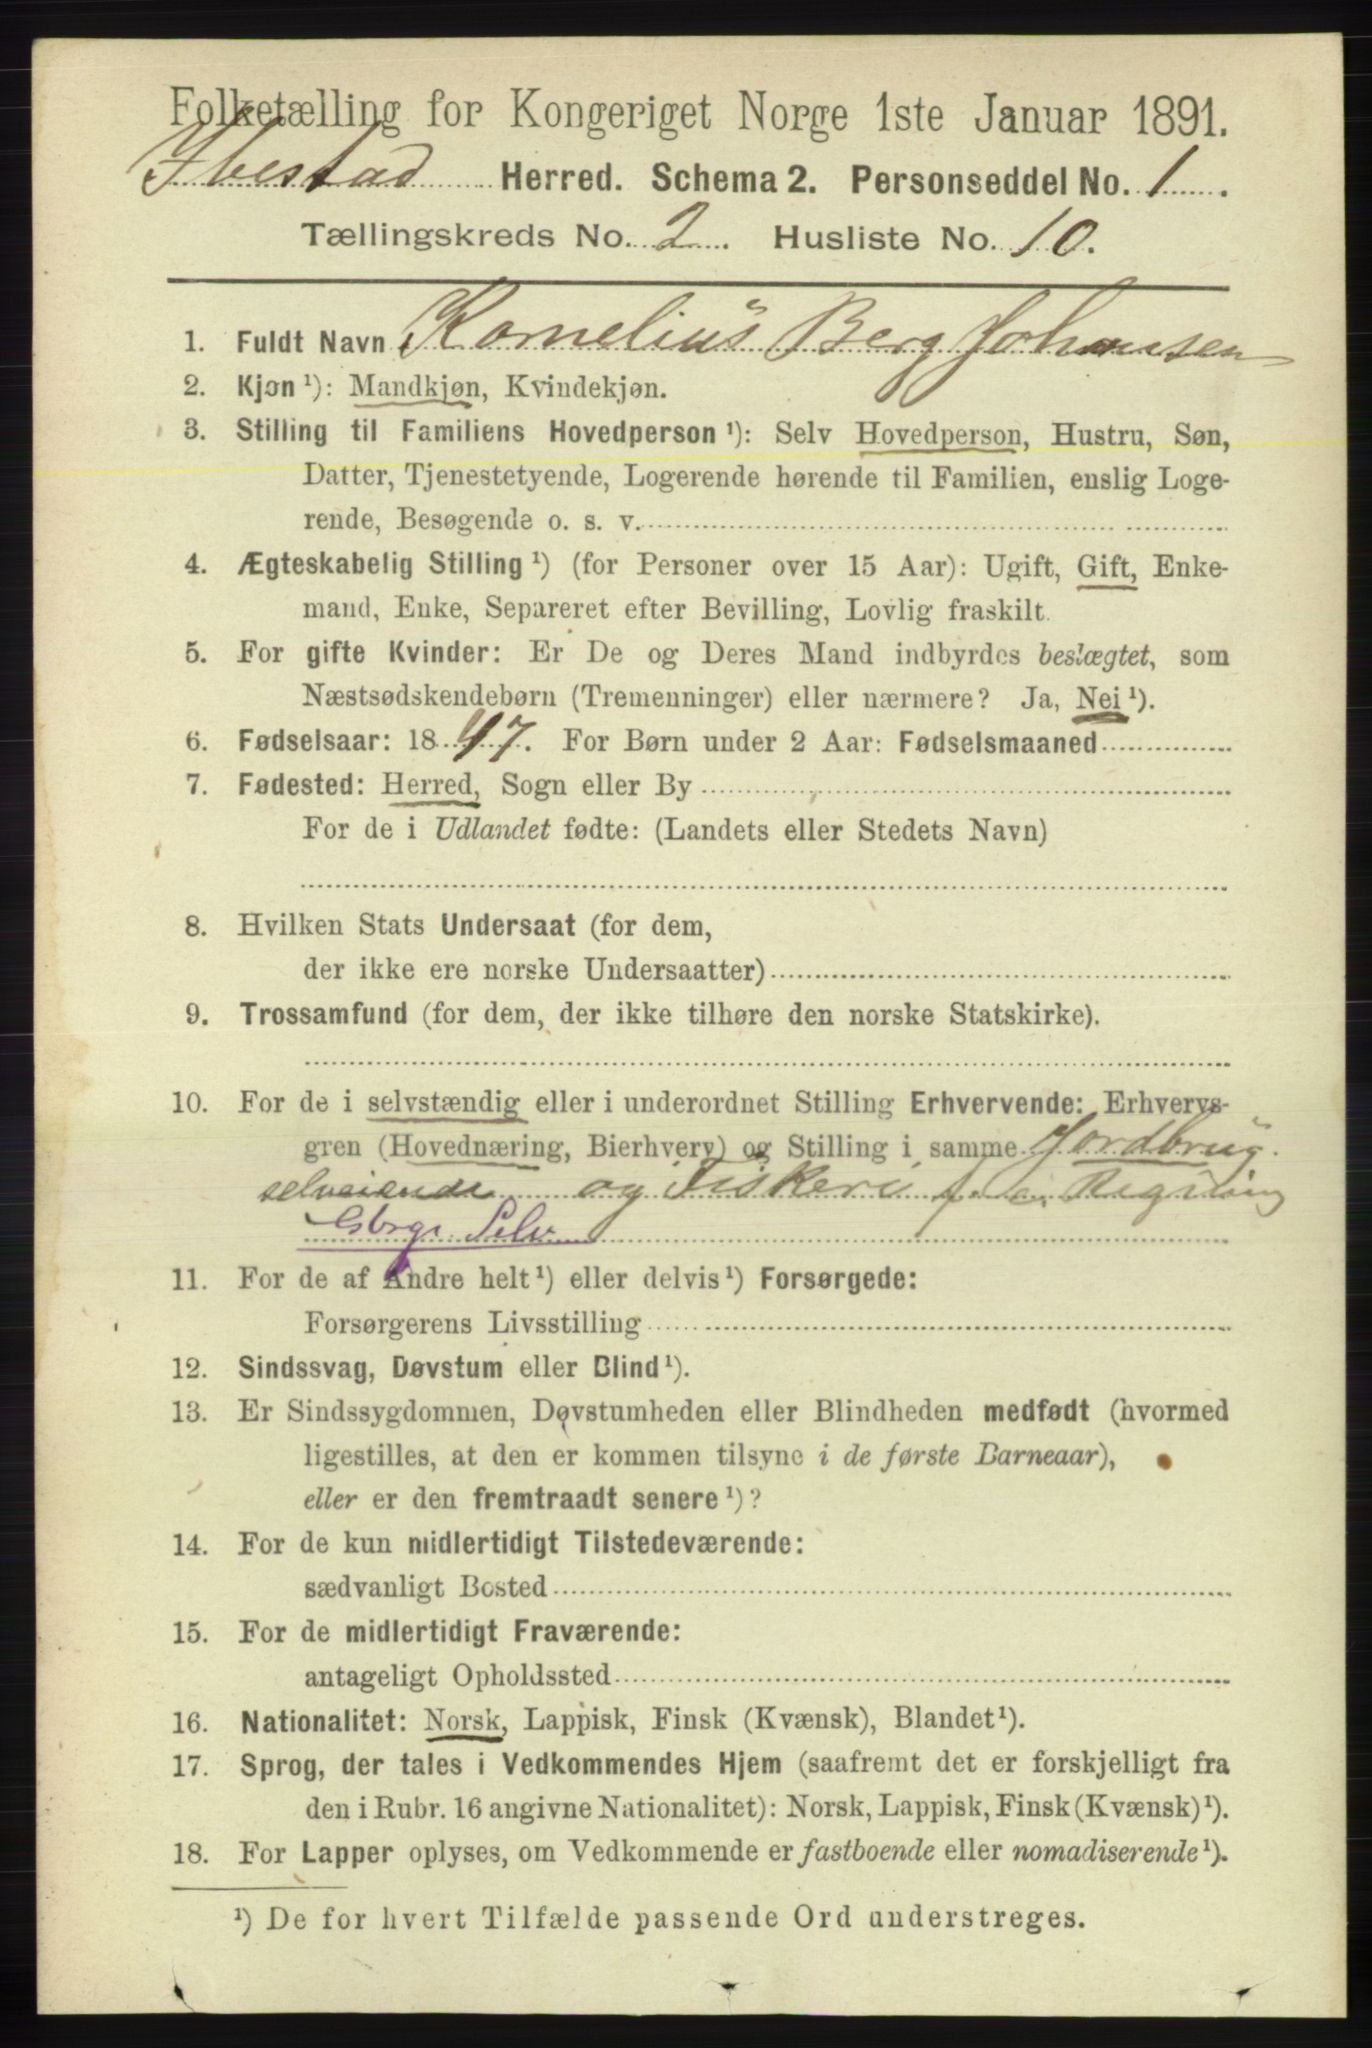 Folketælling for Kongeriget Norge 1ste Januar 1891.
Ibestad Herred. Schema 2. Personseddel No. 1.
Tællingskreds No. 2. Husliste No. 10.
1. Fuldt Navn Kornelius Berg Johansen
2. Kjøn ¹): Mandkjøn, Kvindekjøn.
3. Stilling til Familiens Hovedperson ¹): Selv Hovedperson, Hustru, Søn,
Datter, Tjenestetyende, Logerende hørende til Familien, enslig Loge-
rende, Besøgende o. s. v.
4. Ægteskabelig Stilling ¹) (for Personer over 15 Aar): Ugift, Gift, Enke-
mand, Enke, Separeret efter Bevilling, Lovlig fraskilt.
5. For gifte Kvinder: Er De og Deres Mand indbyrdes beslægtet, som
Næstsødskendebørn (Tremenninger) eller nærmere? Ja, Nei ¹).
6. Fødselsaar: 1847. For Børn under 2 Aar: Fødselsmaaned
7. Fødested: Herred, Sogn eller By
For de i Udlandet fødte: (Landets eller Stedets Navn)
8. Hvilken Stats Undersaat (for dem,
der ikke ere norske Undersaatter)
9. Trossamfund (for dem, der ikke tilhøre den norske Statskirke).
10. For de i selvstændig eller i underordnet Stilling Erhvervende: Erhvervs-
gren (Hovednæring, Bierhverv) og Stilling i samme Jordbrug.
selveiende og Fiskeri
Gbrgr Selv
11. For de af Andre helt ¹) eller delvis ¹) Forsørgede:
Forsørgerens Livsstilling
12. Sindssvag, Døvstum eller Blind ¹).
13. Er Sindssygdommen, Døvstumheden eller Blindheden medfødt (hvormed
ligestilles, at den er kommen tilsyne i de første Barneaar),
eller er den fremtraadt senere ¹)?
14. For de kun midlertidigt Tilstedeværende:
sædvanligt Bosted
15. For de midlertidigt Fraværende:
antageligt Opholdssted
16. Nationalitet: Norsk, Lappisk, Finsk (Kvænsk), Blandet ¹).
17. Sprog, der tales i Vedkommendes Hjem (saafremt det er forskjelligt fra
den i Rubr. 16 angivne Nationalitet): Norsk, Lappisk, Finsk (Kvænsk) ¹).
18. For Lapper oplyses, om Vedkommende er fastboende eller nomadiserende ¹).
¹) De for hvert Tilfælde passende Ord understreges.